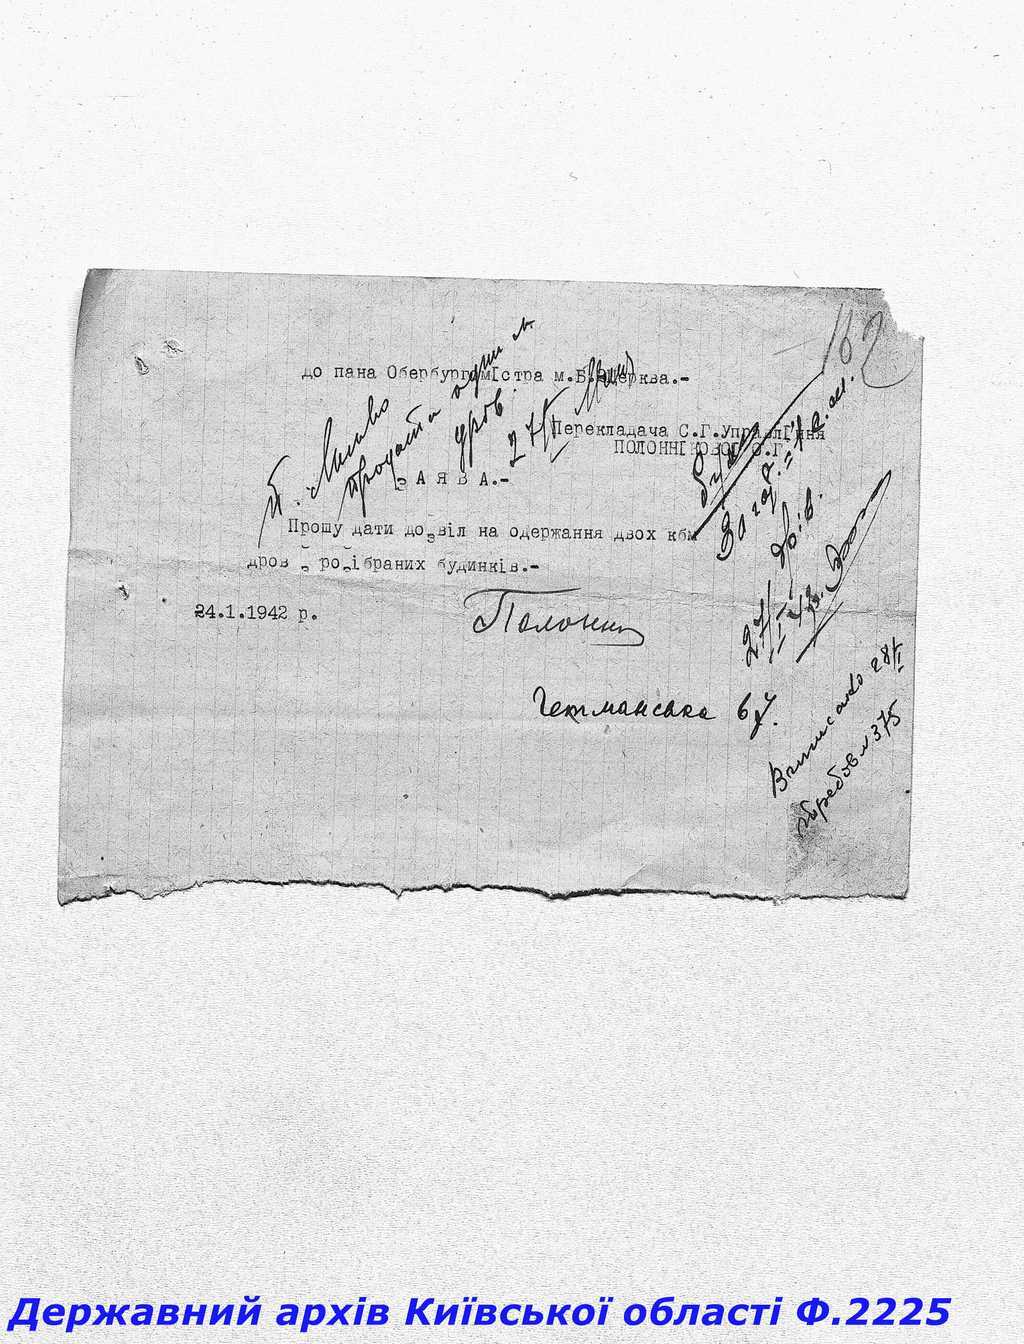 162
до пана Обербургомістра м.Б.Церква.-
Перекладача С.Г.Управління
ПОЛОННІКОВОЇ О.Г.
ЗАЯВА.-
Прошу дати дозвіл на одержання двох кбм
дров з розібраних будинків.-
24.1.1942 р.
Гетманська 6
продати один м
дров
27/I
27/I
Виписано 28/I
требов № 375
Державний архів Київської області Ф.2225